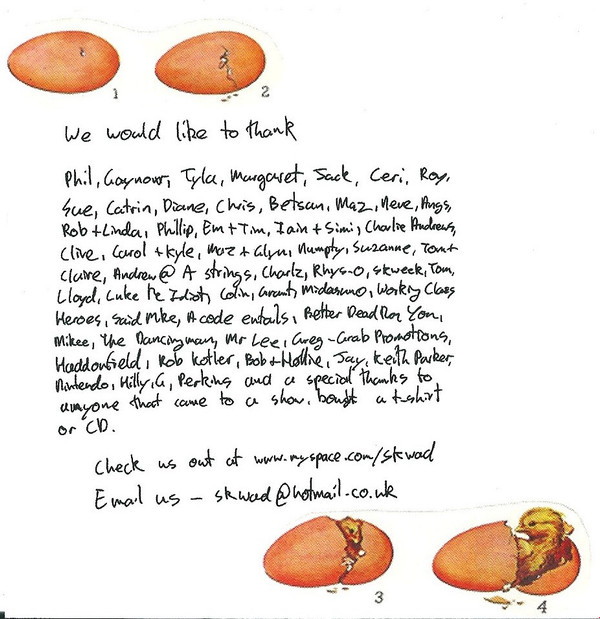 1 2
We would like to thank
Phil, Gaynour, Tyla, Margaret, Jack, Ceri, Roy,
Sue, Catrin, Diane, Chris, Betsan, Maz, Neve, Angs,
Rob + Linda, Phillip, Em + Tim, Iain + Simi, Charlie Andrews,
Clive, Carol + Kyle, Maz + Glyn, Numpty, Suzanne, Tom +
Claire, Andrew @ A strings, Charlz, Rhys-O, Skweek, Tom,
Lloyd, Luke the Idiot, Colin, Grant, Midasuno, Working Class
Heroes, Said Mike, A code entails, Better Dead Than You,
Mikee, The Dancingman, Mr Lee, Greg - Grab Promotions,
Haddonfield, Rob Kotler, Bob + Hollie, Jay, Keith Parker,
Nintendo, Hilly, G, Perkins and a special thanks to
anyone that came to a show, bought a t-shirt
or CD.
Check us out at www.myspace.com/skwad
Email us - skwad@hotmail.co.uk
3 4